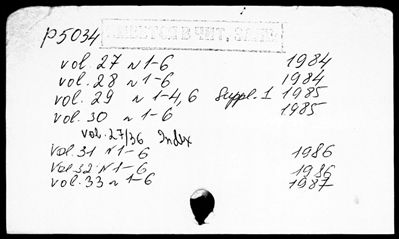 p5034
vol. 27 N 1-6 1984
vol. 28 N 1-6 1984
vol. 29 N 1-4, 6 Suppl. 1 1985
vol. 30 N 1-6 1985
vol. 27/36 Index
vol. 31 N 1-6 1986
vol. 32 N 1-6 1986
vol. 33 N 1-6 1987